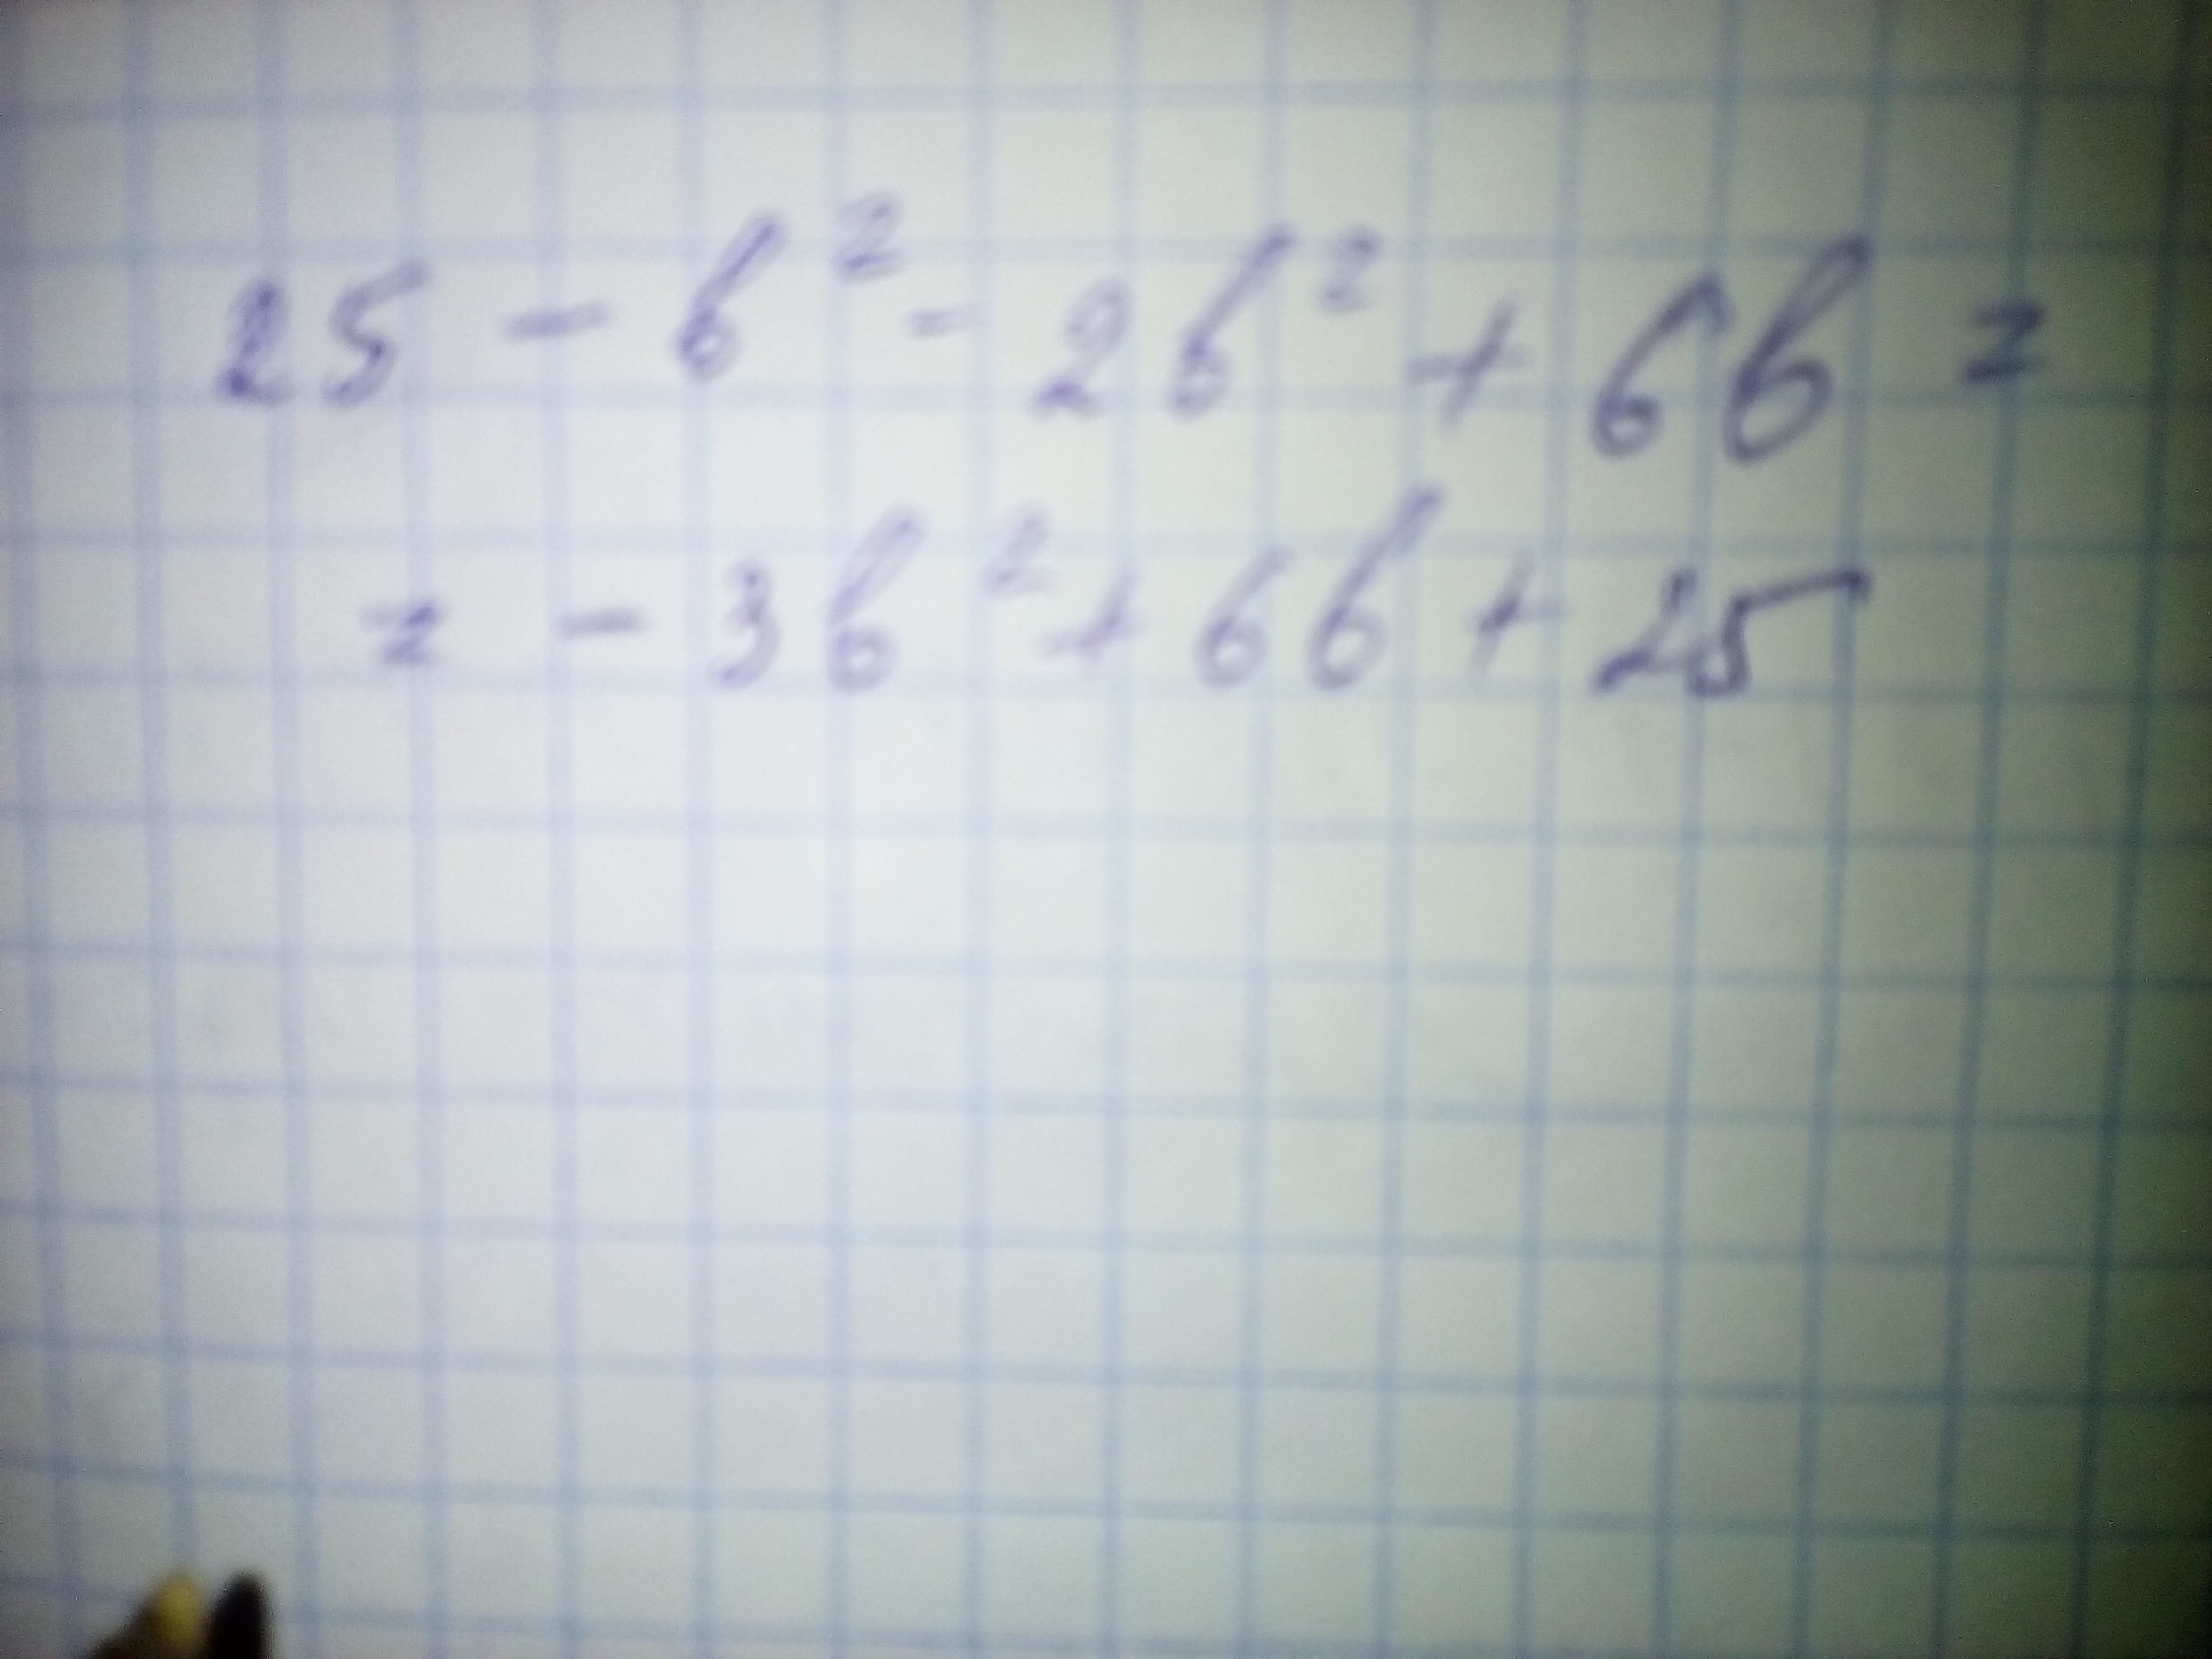 25 - b² - 2b² + 6b =
= - 3b² + 6b + 25